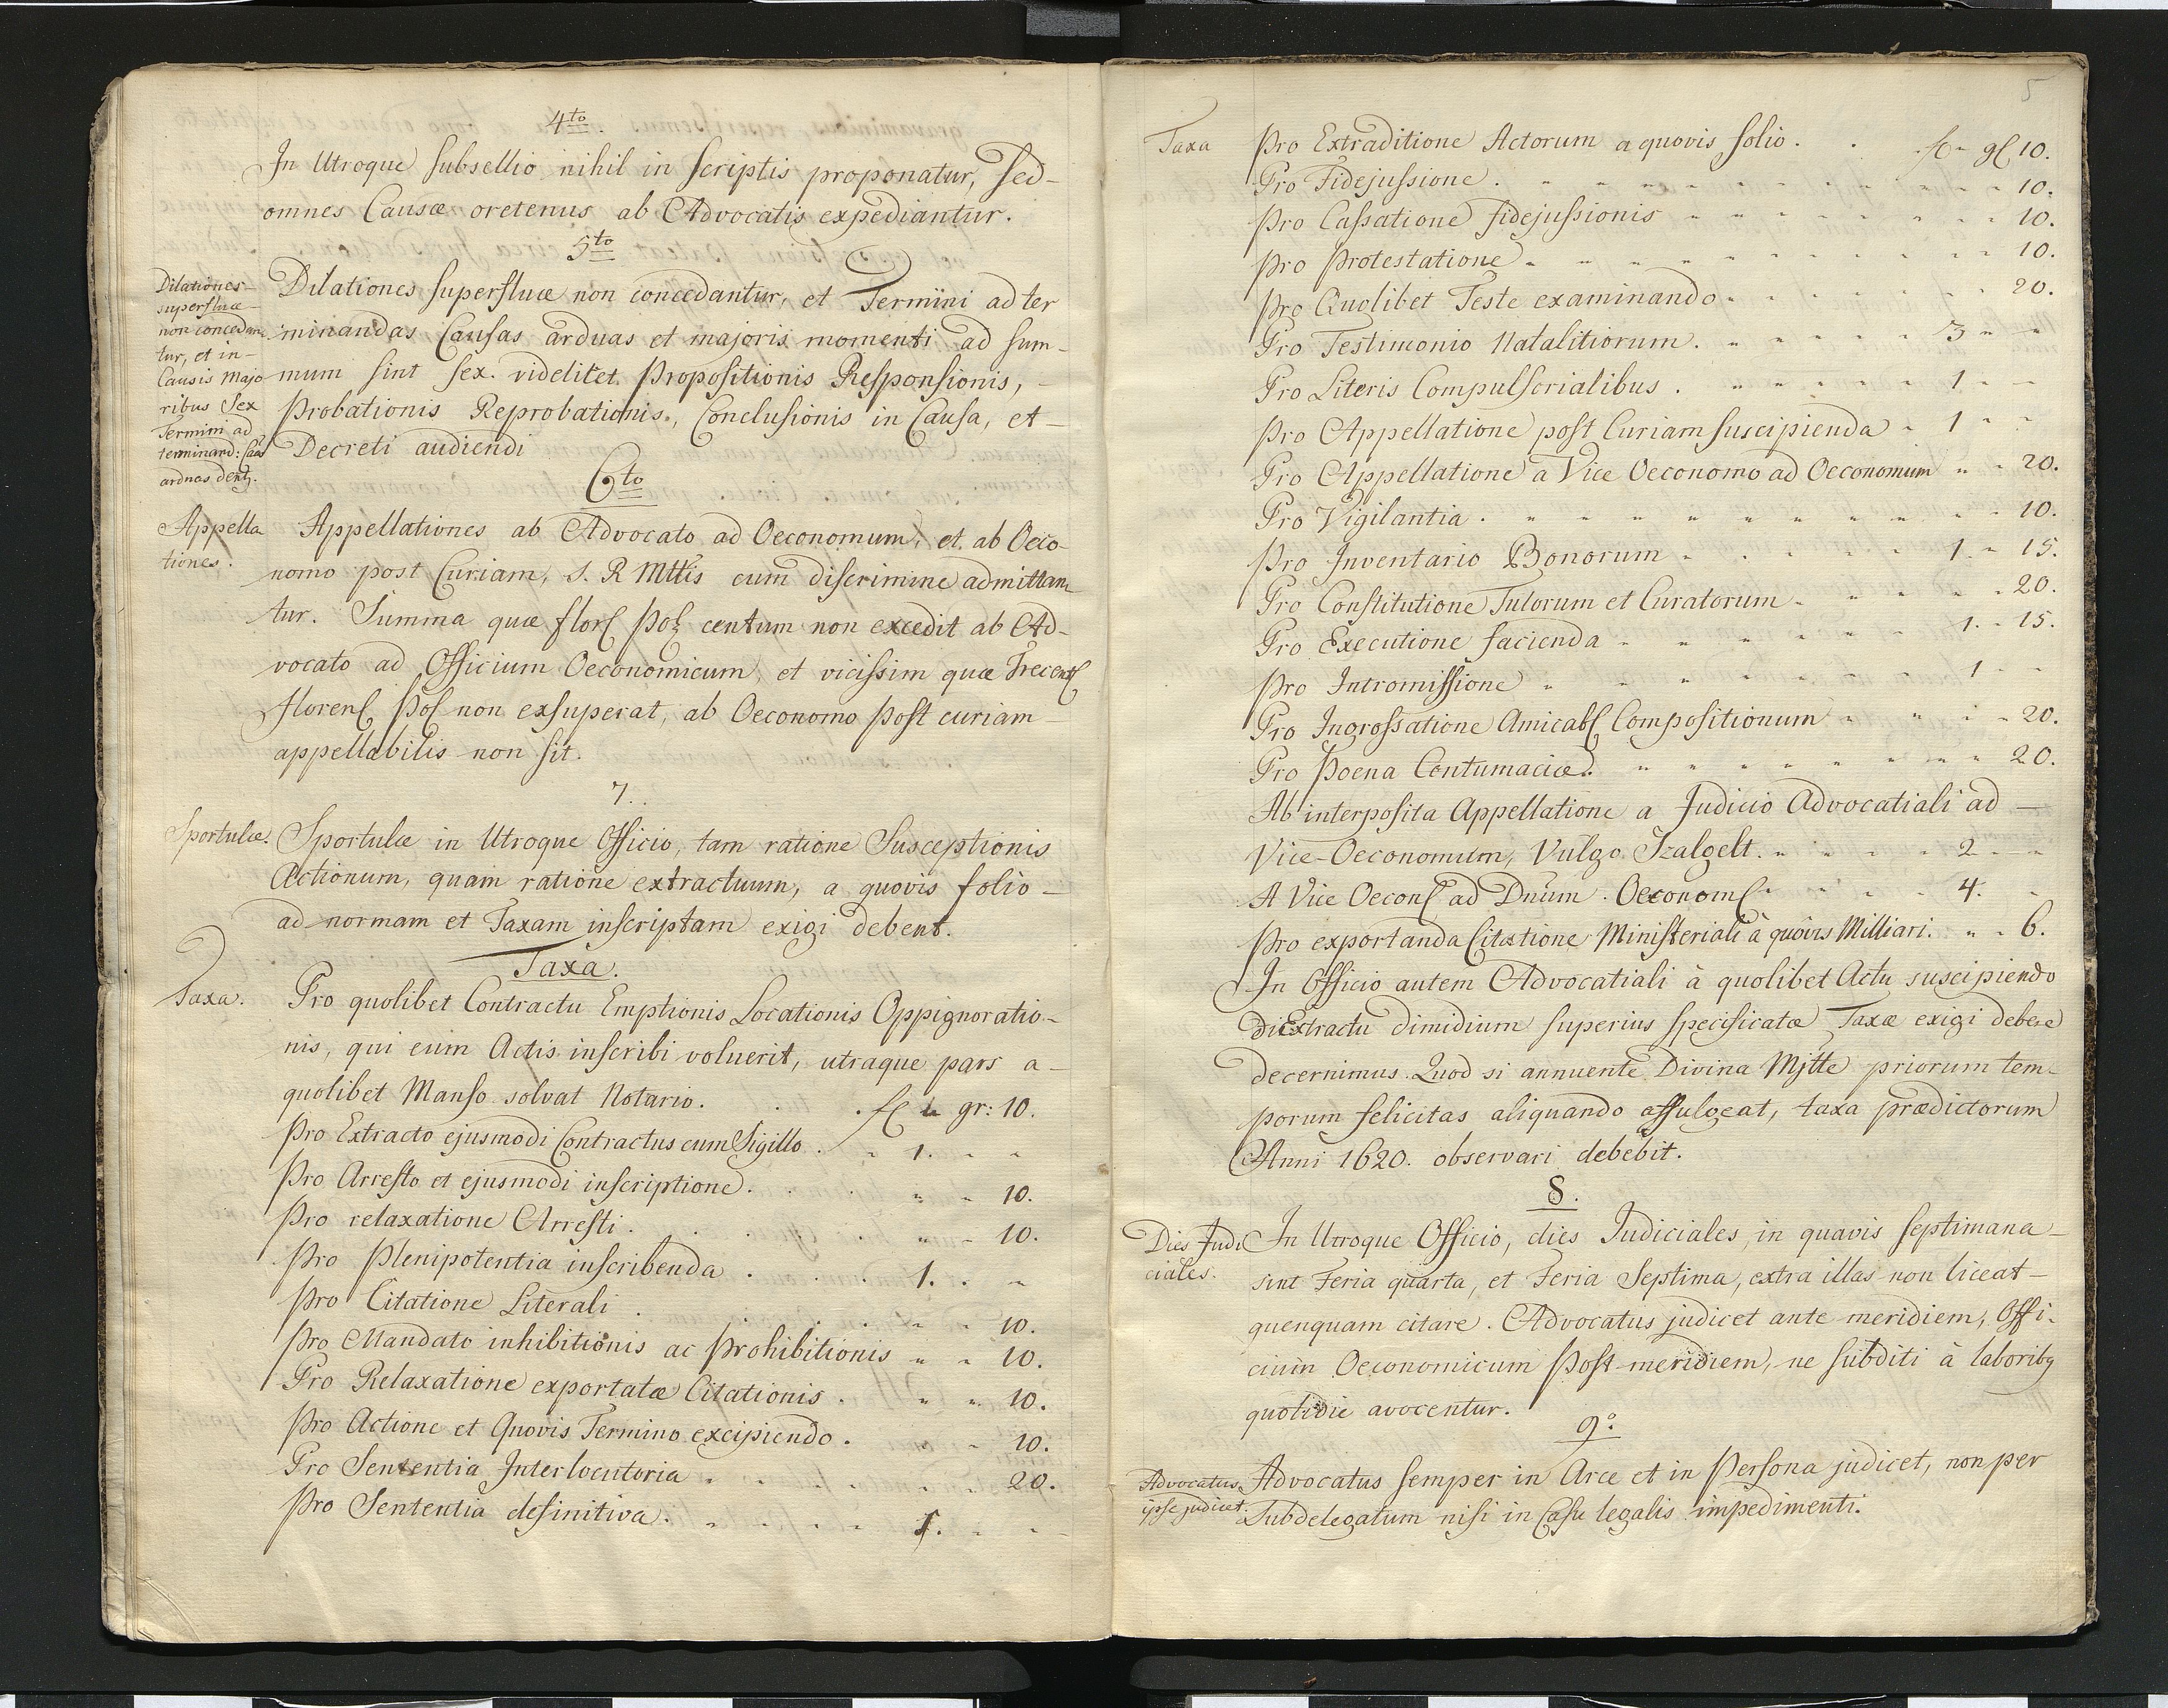 4to.
In Utroque Subsellio nihil in Scriptis proponatur, Sed-
omnes Causæ oretenus ab Advocatis expediantur.
5to
Dilationes
superfluæ
non concedan
tur, et in-
Causis Majo
ribus Sex
Termini ad
terminand: Cãs
arduas dent.
Dilationes superfluæ non concedantur, et Termini ad ter
minandas Causas arduas et majoris momenti ad sum-
mum sint sex. videlicet. Propositionis Responsionis, -
Probationis Reprobationis., Conclusionis in Causa, et-
Decreti audiendi
6to
Appella
tiones.
Appellationes ab Advocato ad Oeconomum, et ab Oeco-
nomo post Curiam, S. R Mttis cum discrimine admittan
tur. Summa quæ flor Pol centum non excedit ab Ad-
vocato ad Officium Oeconomicum, et vicissim quæ Trecent
Floren Pol non exsuperat, ab Oeconomo Post curiam-
appellabilis non sit.
7.
Sportulæ.
Sportulæ in Utroque Officio, tam ratione Susceptionis
Actionum, quam ratione extractuum, a quovis folio-
ad normam et Taxam inscriptam exigi debent.
Taxa.
Taxa.
Pro quolibet Contractu Emptionis Locationis Oppignoratio-
nis, qui eum Actis inscribi voluerit, utraque pars a-
quolibet Manso solvat Notario. . . fl " gr: 10.
Pro Extracto ejusmodi Contractus cum Sigillo . " 1. " "
Pro Arresto et ejusmodi inscriptione. . . " " 10.
Pro relaxatione Arresti. . . . " " 10.
Pro Plenipotentia inscribenda . . . 1. . "
Pro Citatione Literali . . . . " " 10.
Pro Mandato inhibitionis ac Prohibitionis " " 10.
Pro Relaxatione exportatæ Citationis. " " 10.
Pro Actione et Quovis Termino excipiendo. . " 10.
Pro Sententia Interlocutoria " " . . " " 20.
Pro Sententia definitiva. " " " " 1. " "
5
Taxa
Pro Extraditione Actorum a quovis folio. . . fl " gl 10.
Pro Fidejussione. " " " " " " " 10.
Pro Cassatione fidejussionis " " " " " " 10.
Pro Protestatione " " " " " " " 10.
Pro Quolibet Teste examinando " " " " " 20.
Pro Testimonio Natalitiorum. " " " " 3 " "
Pro Literis Compulsorialibus. " " " " 1 " "
Pro Appellatione post Curiam suscipienda " 1 " "
Pro Appellatione a Vice Oeconomo ad Oeconomum " " 20.
Pro Vigilantia. " " " " " " " 10.
Pro Inventario Bonorum " " " " 1. " 15.
Pro Constitutione Tutorum et Curatorum " " " " 20.
Pro Executione facienda " " " " 1. " 15.
Pro Intromissione " " " " " 1 " "
Pro Ingrossatione Amicab Compositionum " " " " 20.
Pro Poena Contumaciæ. " " " " " " 20.
Ab interposita Appellatione a Judicio Advocatiali ad -
Vice-Oeconomum, Vulgo Szalgelt. " " " " 2 " "
A Vice Oecon ad Dnum. Oeconom " " " " 4. "
Pro exportanda Citatione Ministeriali à quovis Milliari. " " 6.
In Officio autem Advocatiali à quolibet Actu suscipiendo
Extractu dimidium superius specificatæ Taxæ exigi debere
decernimus. Quod si annuente Divina Mjtte priorum tem-
porum felicitas aliquando affulgeat, taxa prædictorum
Anni 1620. observari debebit.
8.
Dies Judi
ciales.
In Utroque Officio, dies Judiciales, in quavis septimana-
sint Feria quarta, et Feria Septima, extra illas non liceat-
quenquam citare. Advocatus judicet ante meridiem, Offi-
cium Oeconomicum Post meridiem, ne subditi à laboribq
quotidie avocentur.
9o.
Advocatus
ipse judicet.
Advocatus semper in Arce et in Persona judicet, non per
Subdelegatum nisi in Casu legalis impedimenti.